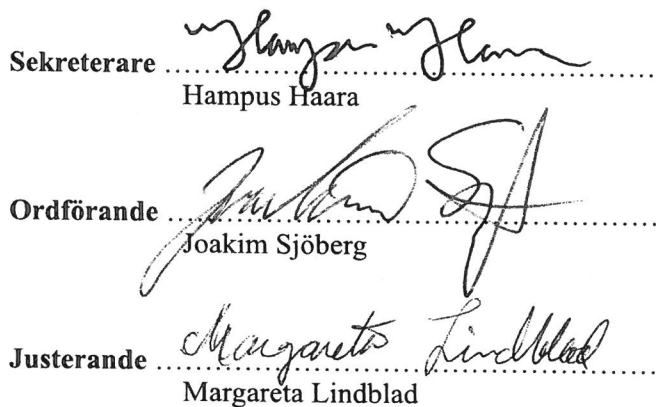 Sekreterare Hampus Haara
Hampus Haara
Ordförande Joakim Sj
Joakim Sjöberg
Justerande Margareta Lindblad
Margareta Lindblad